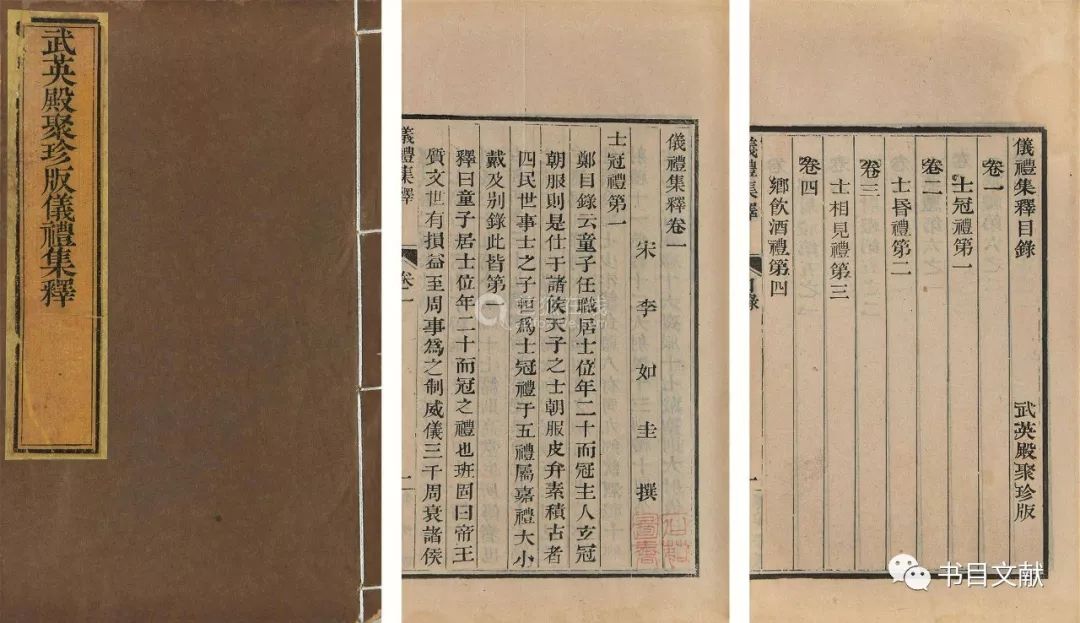 武英殿聚珍版儀禮集釋
儀禮集釋卷一
宋 李 如 圭 撰
士冠禮第一
鄭目錄云童子任職居士位年二十而冠主人玄冠
朝服則是仕于諸侯天子之士朝服皮弁素積古者
四民世事士之子恒為士冠禮于五禮屬嘉禮大小
戴及別錄此皆第一
釋曰童子居士位年二十而冠之禮也班固曰帝王
質文世有損益至周事為之制威儀三千周衰諸侯
儀禮集釋 卷一 一
儀禮集釋目錄 武英殿聚珍版
卷一
士冠禮第一
卷二
士昏禮第二
卷三
士相見禮第三
卷四
鄉飲酒禮第四
儀禮集釋 目錄 一
书目文献